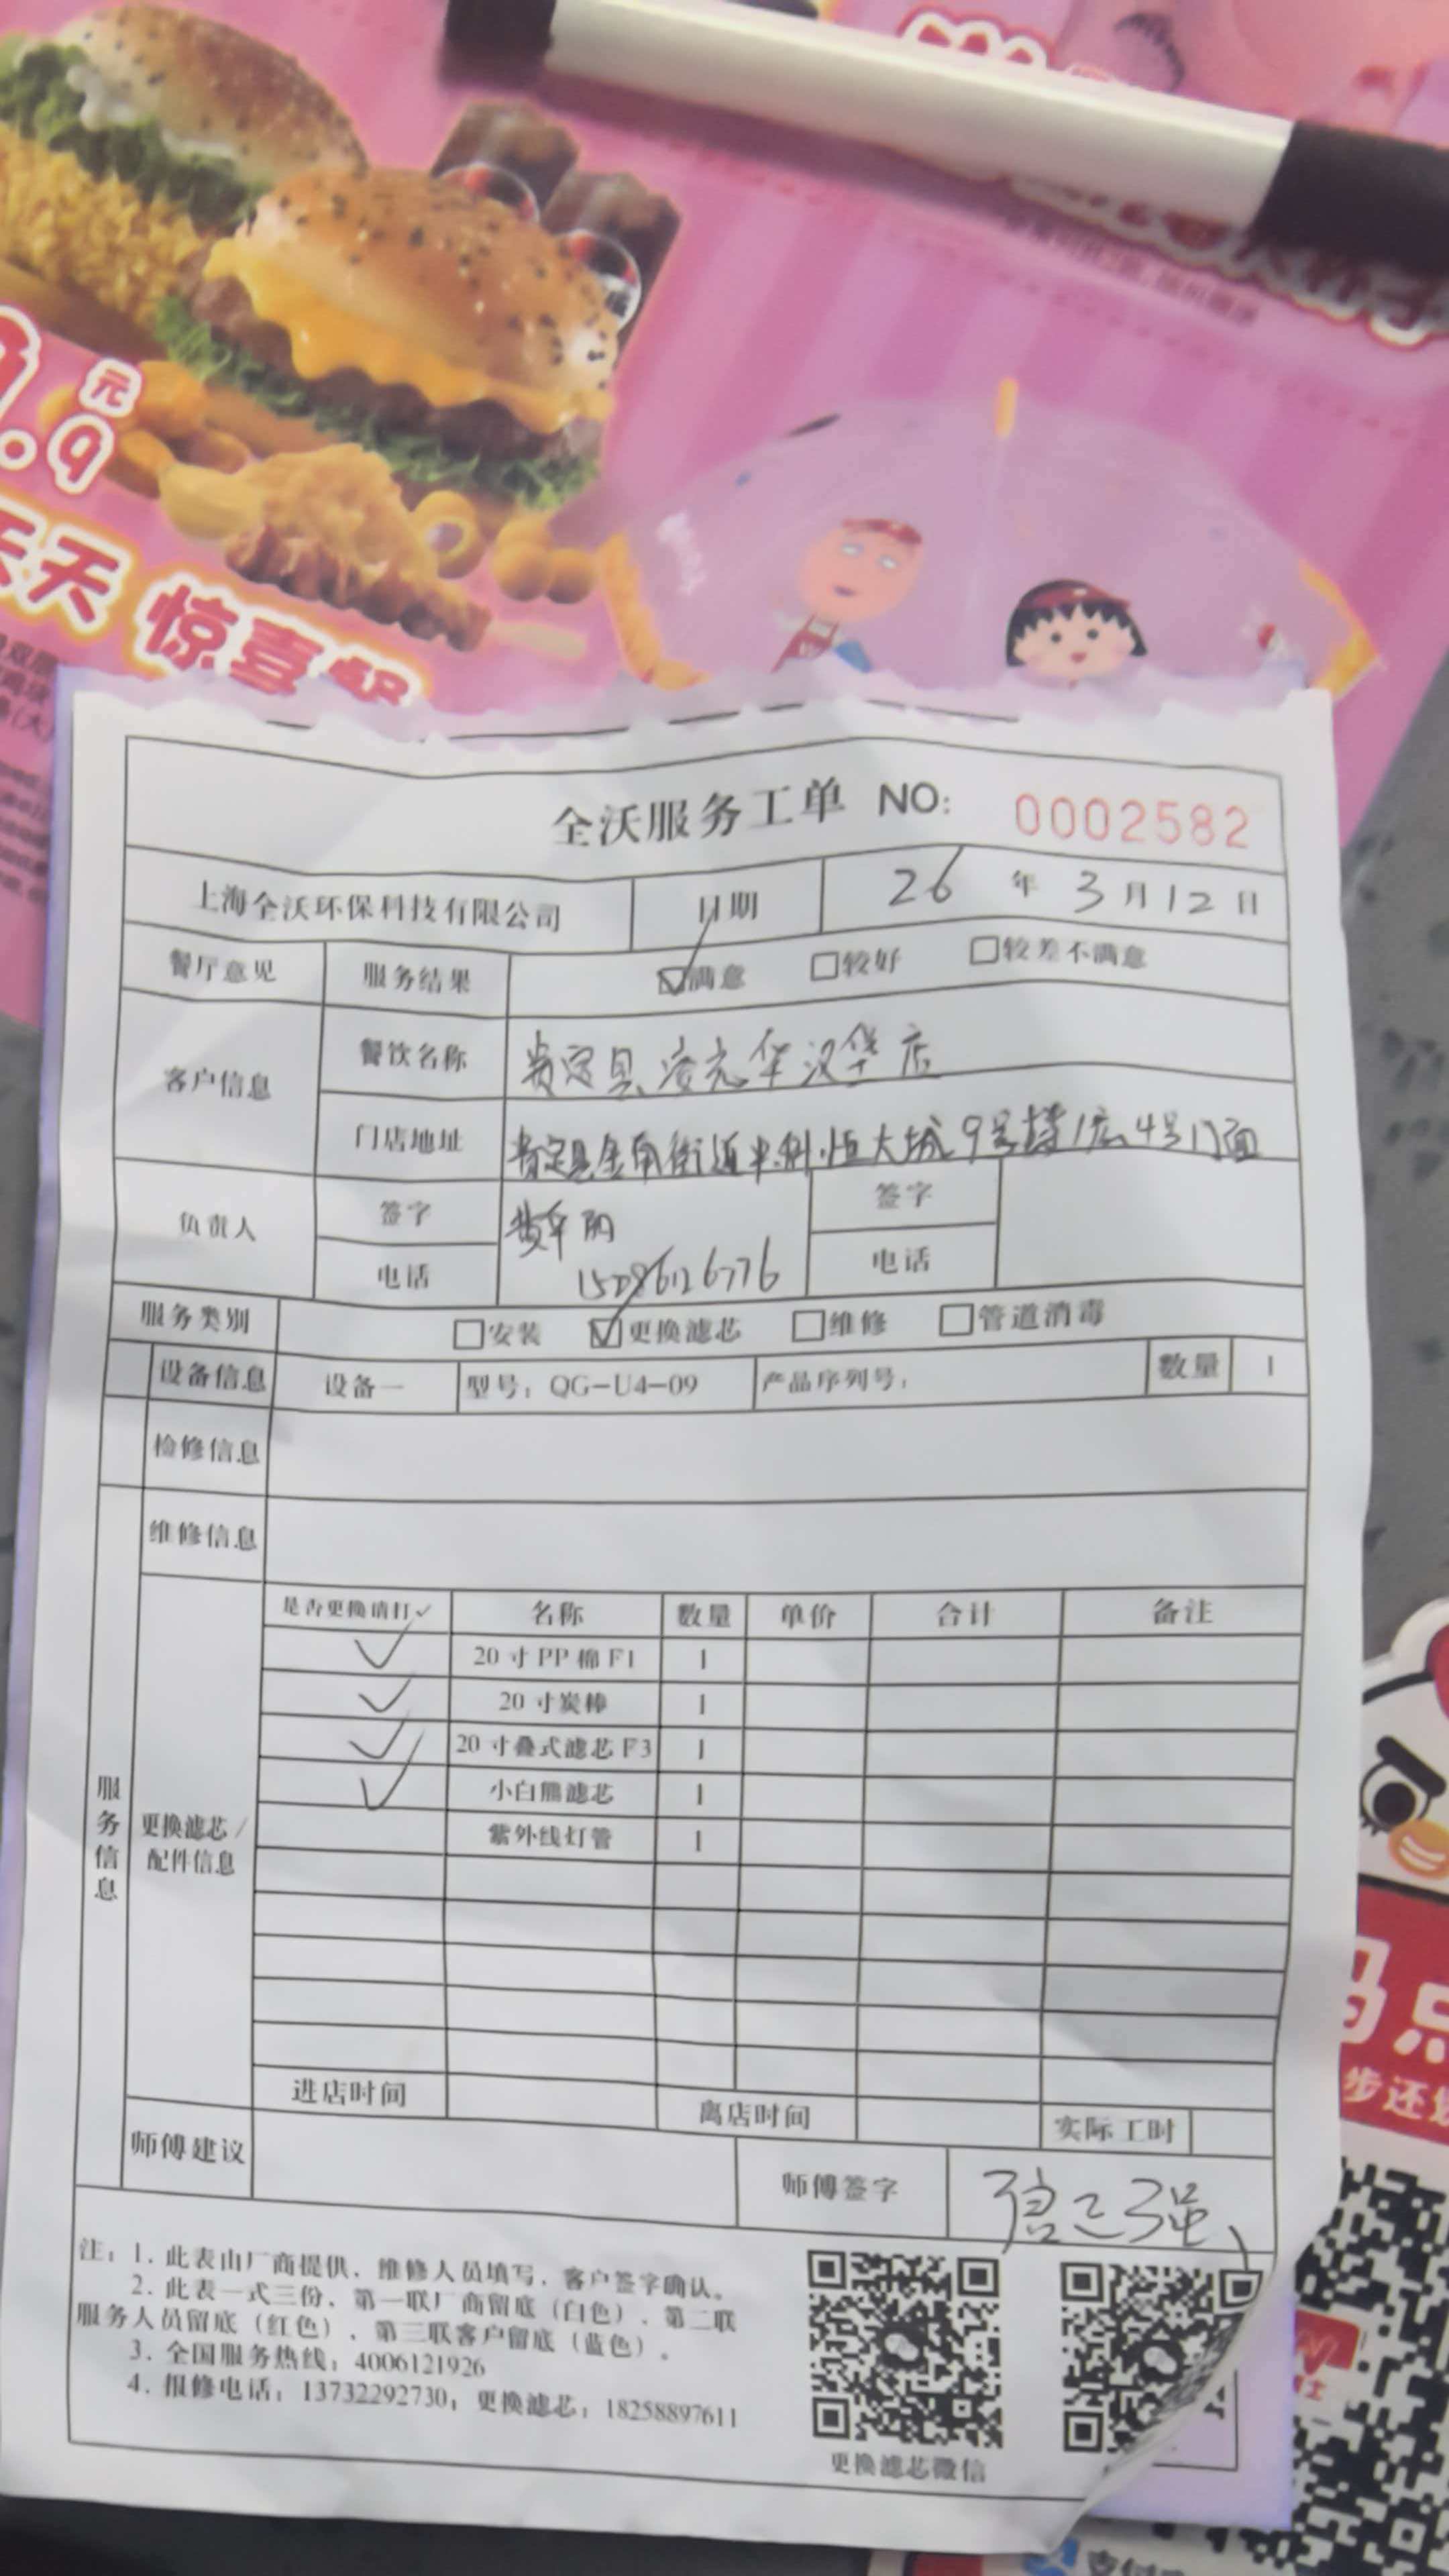 .9元
天天 惊喜餐
全沃服务工单 NO: 0002582
上海全沃环保科技有限公司 日期 26年3月12日
餐厅意见 服务结果 ☑满意 □较好 □较差不满意
客户信息 餐饮名称 贵定县凌元华汉堡店
门店地址 贵定县金南街道 恒大城9号楼1层4号门面
负责人 签字 签字
电话 15286126776 电话
服务类别 □安装 ☑更换滤芯 □维修 □管道消毒
设备信息 设备一 型号：QG-U4-09 产品序列号： 数量 1
检修信息
维修信息
服务信息
更换滤芯/配件信息
是否更换请打✓ 名称 数量 单价 合计 备注
✓ 20寸PP棉F1 1
✓ 20寸炭棒 1
✓ 20寸叠式滤芯F3 1
✓ 小白熊滤芯 1
紫外线灯管 1
进店时间 离店时间 实际工时
师傅建议 师傅签字
注：1. 此表由厂商提供、维修人员填写、客户签字确认。
2. 此表一式三份、第一联厂商留底（白色）、第二联
服务人员留底（红色）、第三联客户留底（蓝色）。
3. 全国服务热线：4006121926
4. 报修电话：13732292730；更换滤芯：18258897611
更换滤芯微信
码点
步还
支付